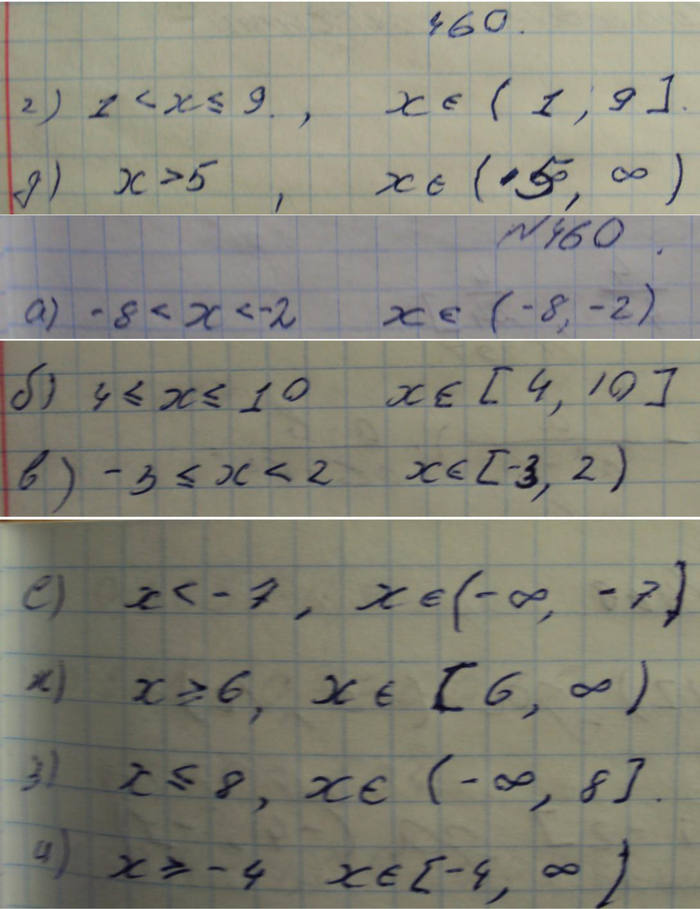 460.
г) 1 < x ≤ 9. , x ∈ ( 1 ; 9 ].
д) x > 5 , x ∈ ( 5, ∞ )
№460.
а) -8 < x < -2 x ∈ (-8, -2)
б) 4 ≤ x ≤ 10 x ∈ [ 4, 10 ]
в) -3 ≤ x < 2 x ∈ [-3, 2 )
е) x < -7 , x ∈ (-∞, -7]
ж) x ≥ 6, x ∈ [ 6, ∞ )
з) x ≤ 8, x ∈ (-∞, 8 ].
и) x ≥ -4 x ∈ [-4, ∞ )